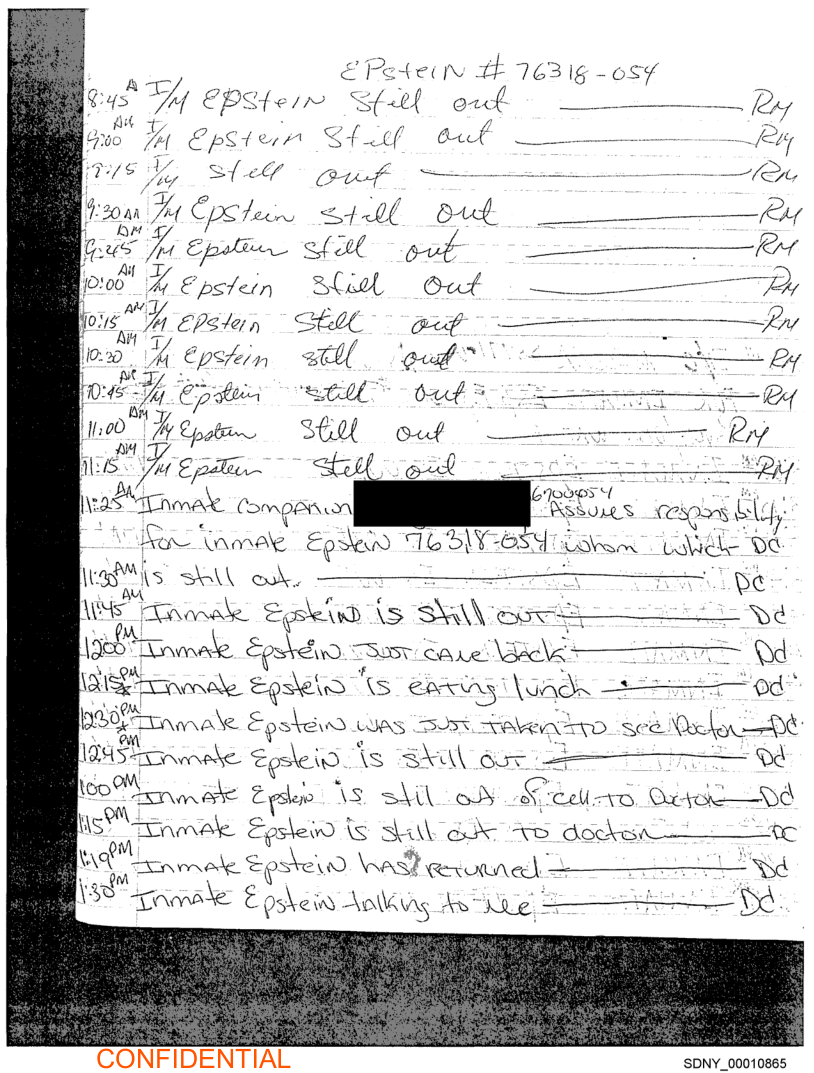 EPsteiN # 76318-054
8:45 A I/M EPStein Still out RM
9:00 AM I/M Epstein Still out RM
9:15 I/M Still out RM
9:30 AM I/M Epstein Still out RM
9:45 AM I/M Epstein Still out RM
10:00 AM I/M Epstein Still out RM
10:15 AM I/M EPstein Still out RM
10:30 AM I/M Epstein still out RM
10:45 AM I/M Epstein still out RM
11:00 AM I/M Epstein Still out RM
11:15 AM I/M Epstein Still out RM
11:25 AM Inmate companion Assumes responsibility
for inmate Epstein 76318-054 whom which DC
11:30 AM is still out. DC
11:45 AM Inmate Epstein is still out DC
12:00 PM Inmate Epstein JUST came back DC
12:15 PM * Inmate Epstein is eating lunch DC
12:30 PM * Inmate Epstein was JUST taken to see Doctor DC
12:45 PM Inmate Epstein is still out DC
1:00 PM Inmate Epstein is still out of cell to Doctor DC
1:15 PM Inmate Epstein is still out to doctor DC
1:19 PM Inmate Epstein has returned DC
1:30 PM Inmate Epstein talking to me DC
CONFIDENTIAL
SDNY_00010865